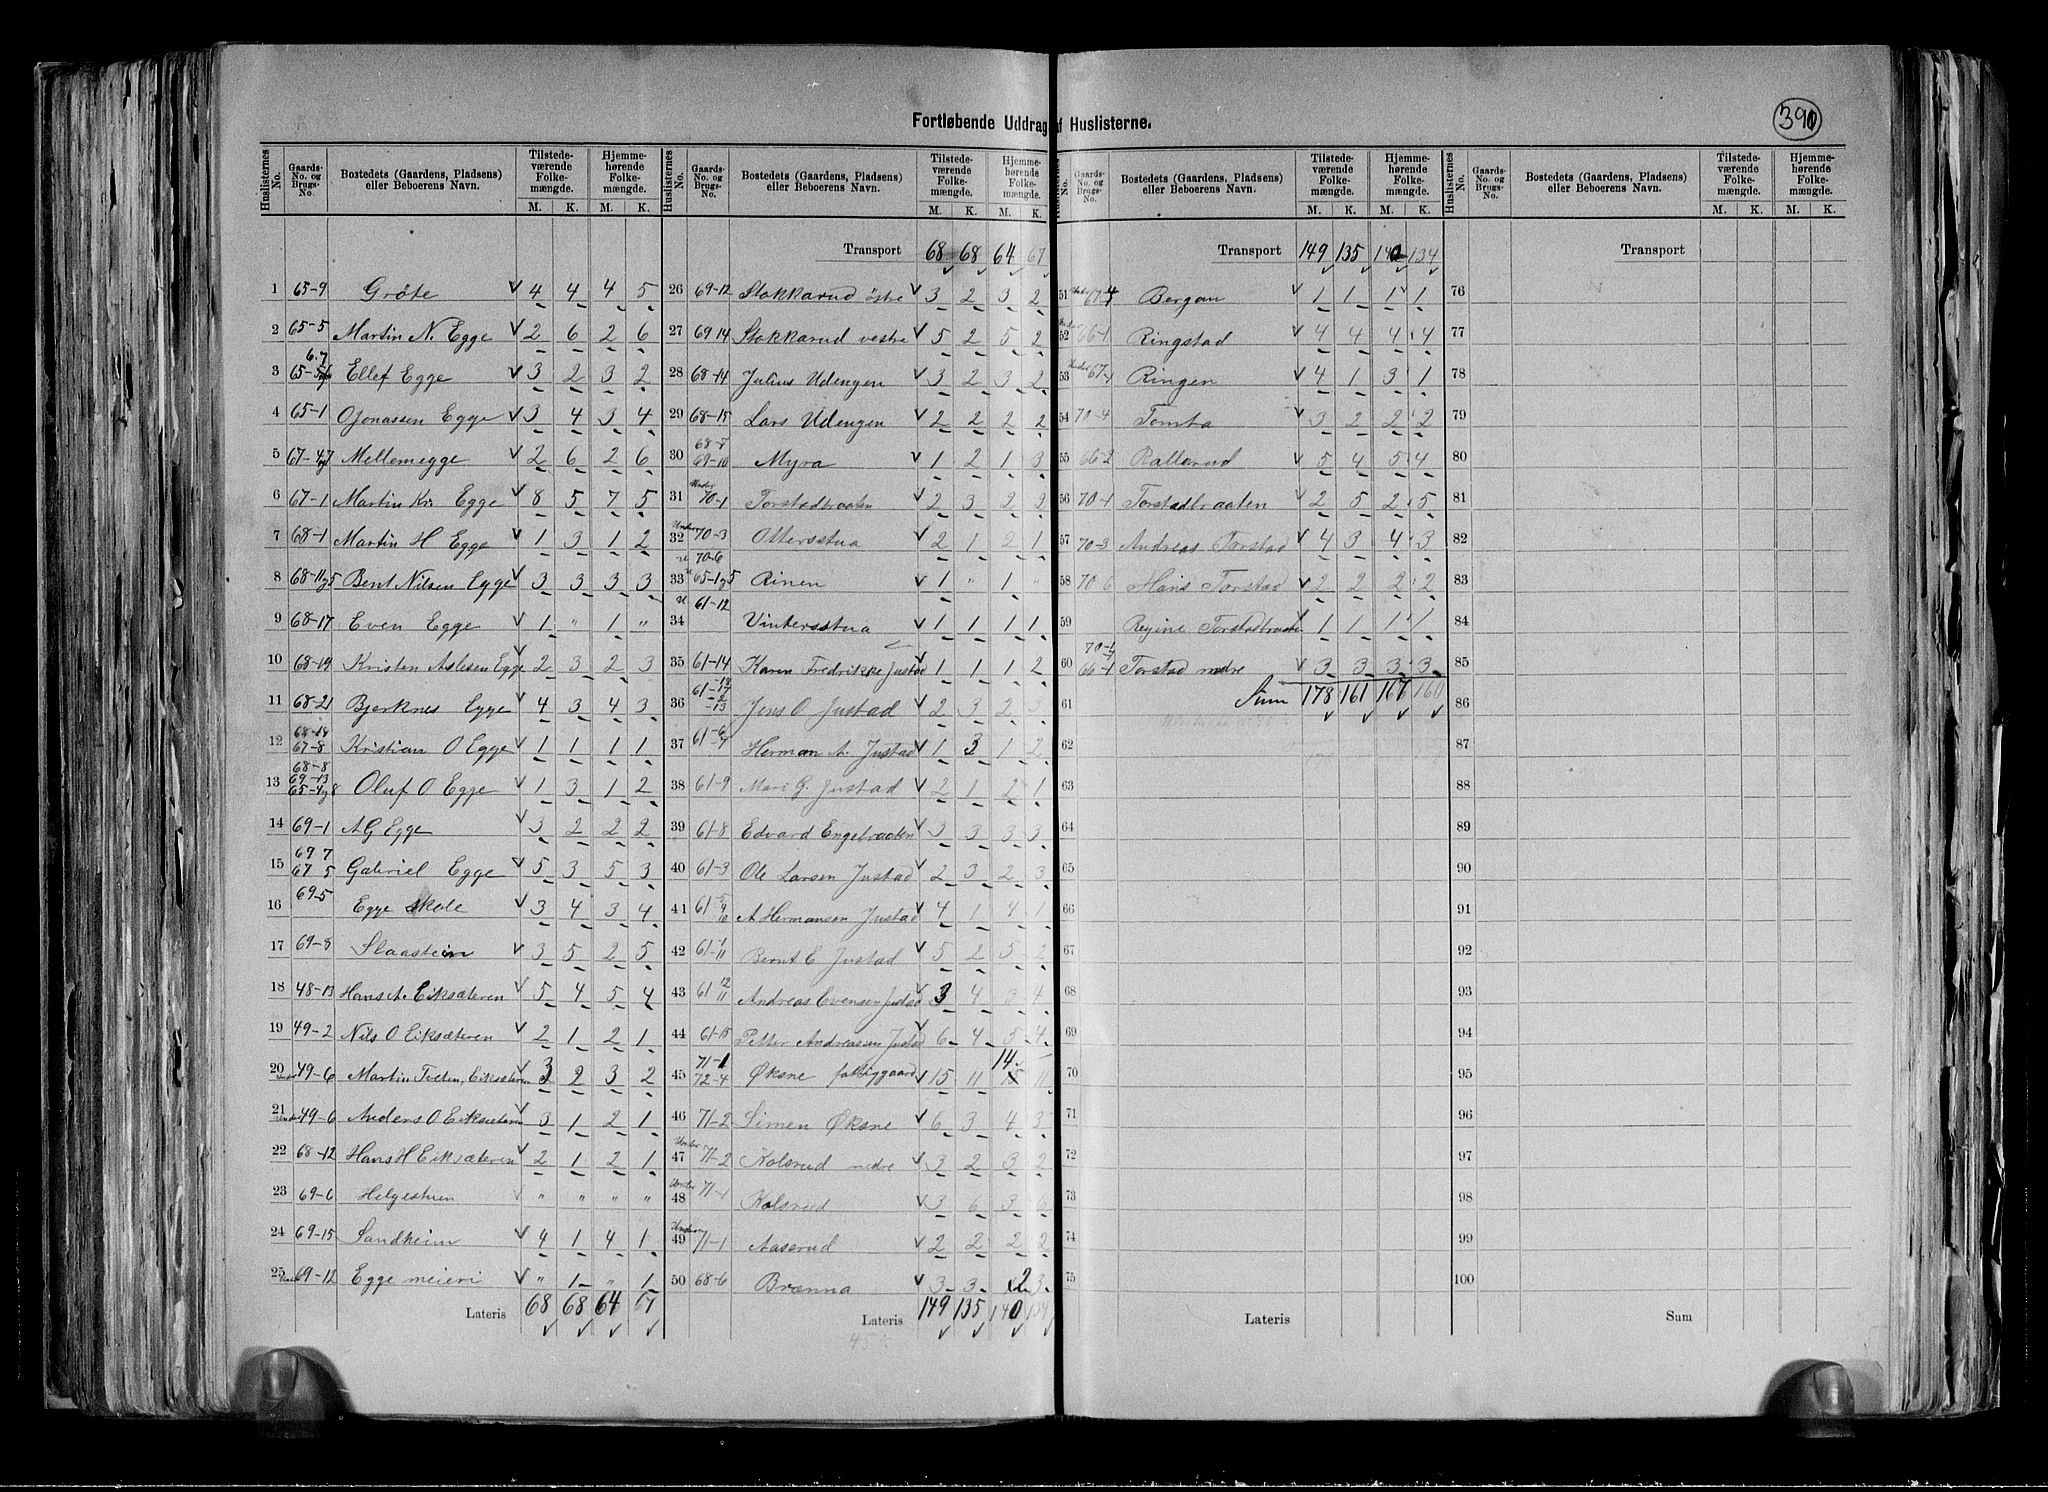 390
Fortløbende Uddrag af Huslisterne.
Huslisternes No. Gaards-No. og Brugs-No. Bostedets (Gaardens, Pladsens) eller Beboerens Navn. Tilstede-værende Folke-mængde. M. K. Hjemme-hørende Folke-mængde. M. K.
1 65-9 Gröte V 4 4 4 5
2 65-5 Martin N. Egge V 2 6 2 6
3 Ellef Egge V 3 2 3 2
4 65-1 O Jonassen Egge V 3 4 3 4
5 Mellemegge V 2 6 2 6
6 67-1 Martin Kr. Egge V 8 5 7 5
7 68-1 Martin H Egge V 1 3 1 2
8 68-11 g 5 Bent Nilsen Egge V 3 3 3 3
9 68-17 Even Egge V 1 " 1 "
10 68-19 Kristen Aslesen Egge V 2 3 2 3
11 68-21 Bjerknes Egge V 4 3 4 3
12 68-18 67-8 Kristian O Egge V 1 1 1 1
13 68-8 69-13 65-4 g 8 Oluf O Egge V 1 3 1 2
14 69-1 A G Egge V 3 2 2 2
15 69 7 67 5 Gabriel Egge V 5 3 5 3
16 69-5 Egge Skole V 3 4 3 4
17 69-8 Slaastein V 3 5 2 5
18 48-13 Hans A. Eiksæteren V 5 4 5 4
19 49-2 Nils O Eiksæteren V 2 1 2 1
20 Under 49-6 Martin Tveten, Eiksæteren V 3 2 3 2
21 Under 49-6 Anders O Eiksæteren V 3 1 2 1
22 68-12 Hans H Eiksæteren V 2 1 2 1
23 69-6 Helgestuen V " " " "
24 69-15 Sandheim V 4 1 4 1
25 Under 69-12 Egge meieri V " 1 " 1
Lateris 68 68 64 67
Huslisternes No. Gaards-No. og Brugs-No. Bostedets (Gaardens, Pladsens) eller Beboerens Navn. Tilstede-værende Folke-mængde. M. K. Hjemme-hørende Folke-mængde. M. K.
Transport 68 68 64 67
26 69-12 Stokkarud østre V 3 2 3 2
27 69 14 Stokkarud vestre V 5 2 5 2
28 68-14 Julius Udengen V 3 2 3 2
29 68-15 Lars Udengen V 2 2 2 2
30 68-7 69-10 Myra V 1 2 1 3
31 Under 70-1 Torstadbraaten V 2 3 2 2
32 Under 70-3 Ottersstua V 2 1 2 1
33 U 70-6 U 65-1 g 5 Rinen V 1 " 1 "
34 U 61-12 Vintersstua V 1 1 1 1
35 61-14 Karen Fredrikke Justad V 1 1 1 2
36 Jens O Justad V 2 3 2 3
37 Herman A. Justad V 1 3 1 2
38 61-9 Mari G. Justad V 2 1 2 1
39 61-8 Edvard Engebraaten V 3 3 3 3
40 61-3 Ole Larsen Justad V 2 3 2 3
41 A Hermansen Justad V 4 1 4 1
42 61-1 11 Bernt E Justad V 5 2 5 2
43 61 12 11 Andreas Evensen Justad V 3 4 3 4
44 61-15 Petter Andreassen Justad V 6 4 5 4
45 71-1 72-4 Øksne fattiggaard V 15 11 14 11
46 71-2 Simen Øksne V 6 3 4 3
47 Under 71-2 Kolsrud nedre V 3 2 3 2
48 Under 71-1 Kolsrud V 3 6 3 6
49 Under 71-1 Aaserud V 2 2 2 2
50 68-6 Brænna V 3 3 2 3
Lateris 149 135 140 134
Huslisternes No. Gaards-No. og Brugs-No. Bostedets (Gaardens, Pladsens) eller Beboerens Navn. Tilstede-værende Folke-mængde. M. K. Hjemme-hørende Folke-mængde. M. K.
Transport 149 135 140 134
51 Under Bergan V 1 1 1 1
52 Under 66-1 Ringstad V 4 4 4 4
53 Under 67-1 Ringen V 4 1 3 1
54 70-4 Tomta V 3 2 2 2
55 66-2 Rallerud V 5 4 5 4
56 70-1 Torstadbraaten V 2 5 2 5
57 70-3 Andreas Torstad V 4 3 4 3
58 70-6 Hans Torstad V 2 2 2 2
59 Regine Torstadbraaten V 1 1 1 1
60 70-1 66-1 Torstad nedre V 3 3 3 3
61 Sum 178 161 167 160
62
63
64
65
66
67
68
69
70
71
72
73
74
75
Lateris
Huslisternes No. Gaards-No. og Brugs-No. Bostedets (Gaardens, Pladsens) eller Beboerens Navn. Tilstede-værende Folke-mængde. M. K. Hjemme-hørende Folke-mængde. M. K.
Transport
76
77
78
79
80
81
82
83
84
85
86
87
88
89
90
91
92
93
94
95
96
97
98
99
100
Sum